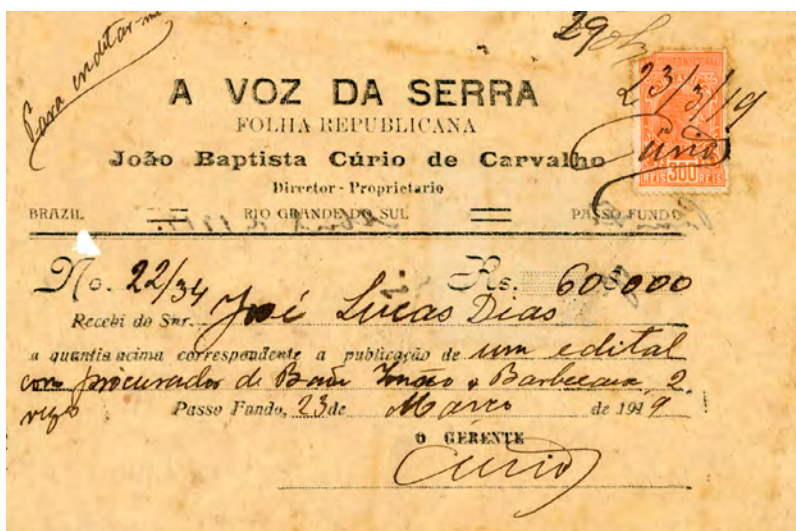 29
23/3/19
Cúrio
A VOZ DA SERRA
FOLHA REPUBLICANA
João Baptista Cúrio de Carvalho
Director-Proprietario
REIS 300 REIS
BRAZIL RIO GRANDE DO SUL PASSO FUNDO
No. 22/34 Rs. 60$000
Recebi do Snr. José Lucas Dias
a quantia acima correspondente a publicação de um edital
com procurador de & 2
vezes Passo Fundo, 23 de Março de 1919
O GERENTE
Cúrio